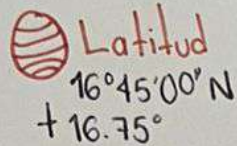 Latitud
16°45'00" N
+16.75°